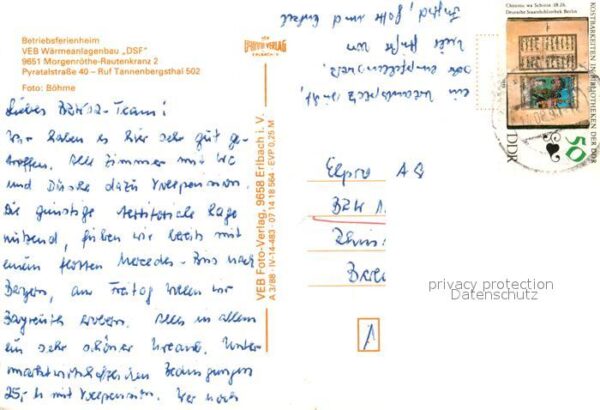 Betriebsferienheim
VEB Wärmeanlagenbau „DSF"
9651 Morgenröthe-Rautenkranz 2
Pyratalstraße 40 – Ruf Tannenbergsthal 502
Foto: Böhme
Liebes BZW12-Team!
Wir haben es hier sehr gut ge-
troffen. Alle Zimmer mit WC
und Dusche dazu Vollpension.
Die günstige territoriale Lage
nutzend, fuhren wir bereits mit
einem flotten Mercedes-Bus nach
Bayern, am Freitag wollen wir
Bayreuth erobern. Alles in allem
ein sehr schöner Urlaub. Unter
marktwirtschaftlichen Bedingungen
25,- M mit Vollpension. Wer noch
ein Urlaubsplatz sucht,
sehr empfehlenswert.
Viele Grüße von
Ingrid, Lotte und Enkel
VEB Foto-Verlag, 9658 Erlbach i. V.
A 3/88 · IV-14-483 07 14 18 564 EVP 0,25 M
Elpro AG
BZW 1
Deutsche Staatsbibliothek Berlin
KOSTBARKEITEN IN BIBLIOTHEKEN DER DDR
50
DDR
privacy protection
Datenschutz